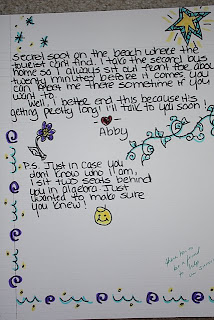 Secret spot on the beach where the
tourists can't find. I take the second bus
home so I always sit out front for about
twenty minutes before it comes, you
can meet me there sometime if you
want to.
Well, I better end this because it's
getting pretty long! I'll talk to you soon!
Abby
P.S. Just in case you
don't know who I am,
I sit two seats behind
you in algebra. Just
wanted to make sure
you knew!